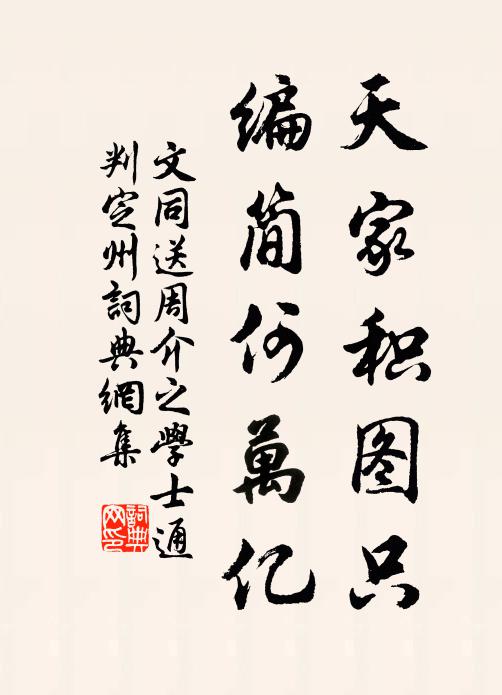 天家积图只
编简何萬亿
文同送周介之學士通
判定州詞典網集
詞典
网印